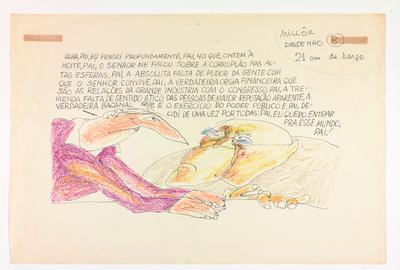 MILLÔR
DESENHO 8
21 cm. de largo
OLHA, PAI, EU PENSEI PROFUNDAMENTE, PAI, NO QUE, ONTEM À
NOITE, PAI, O SENHOR ME FALOU SOBRE A CORRUPÇÃO NAS AL-
TAS ESFERAS, PAI, A ABSOLUTA FALTA DE PUDOR DA GENTE COM
QUE O SENHOR CONVIVE, PAI, A VERDADEIRA ORGIA FINANCEIRA QUE
SÃO AS RELAÇÕES DA GRANDE INDÚSTRIA COM O CONGRESSO, PAI, A TRE-
MENDA FALTA DE SENTIDO ÉTICO, DAS PESSOAS DE MAIOR REPUTAÇÃO APARENTE, A
VERDADEIRA BACANAL QUE É O EXERCÍCIO DO PODER PÚBLICO E, PAI, DE-
CIDI DE UMA VEZ POR TODAS: PAI, EU QUERO ENTRAR
PRA ESSE MUNDO,
PAI!